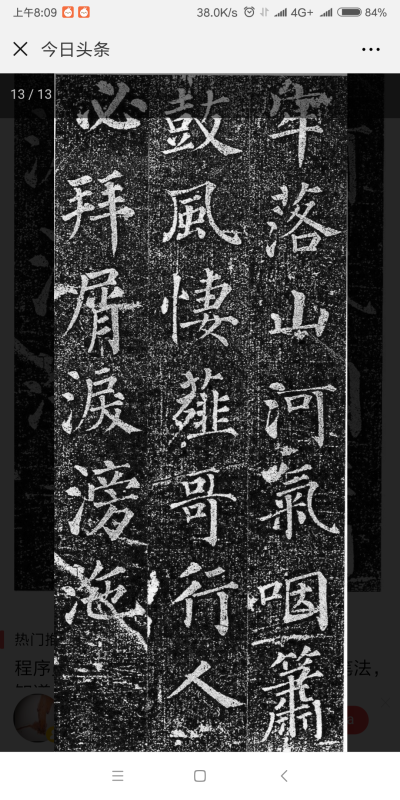 上午8:09 38.0K/s 4G+ 84%
今日头条
13 / 13
牢落山河氣咽簫
鼓風悽薤哥行人
必拜屑淚滂沲
热门推
程序